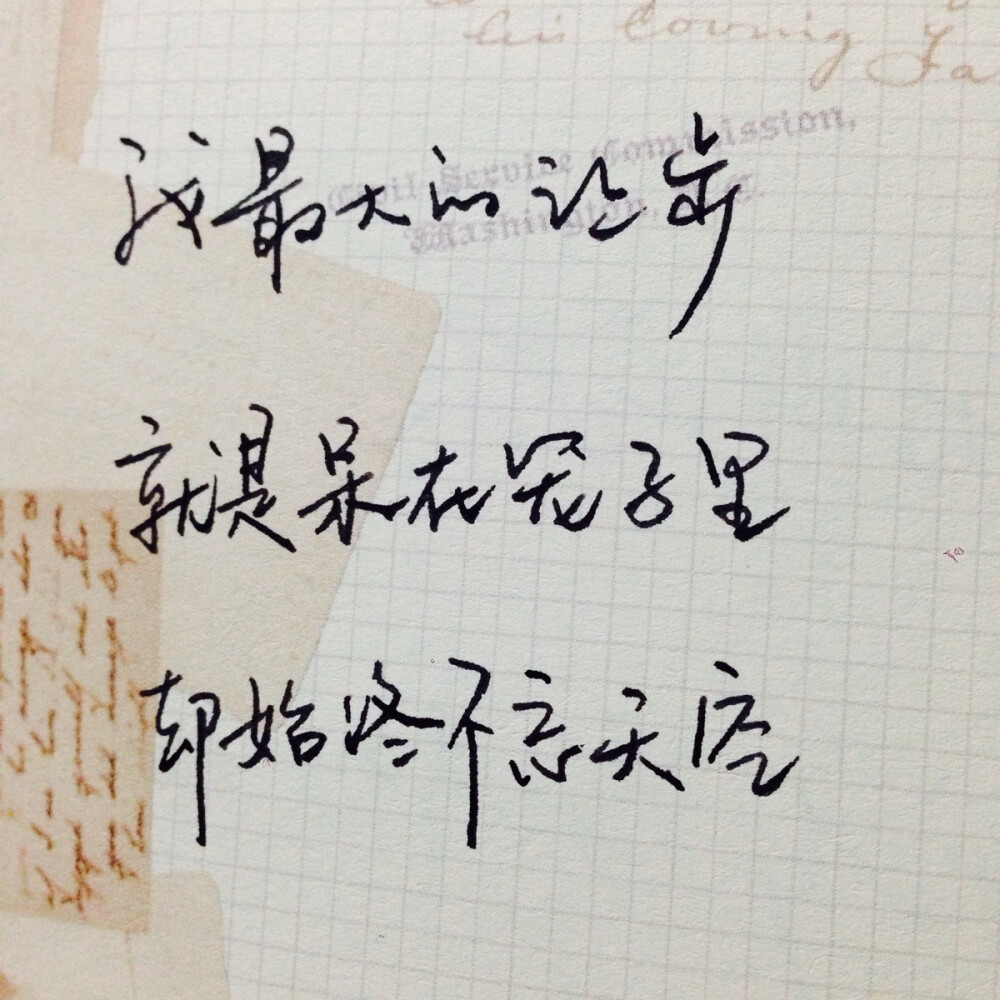 his loving Fa
Civil Service Commission,
Washington, D.C.
我最大的让步
就是呆在笼子里
却始终不忘天空